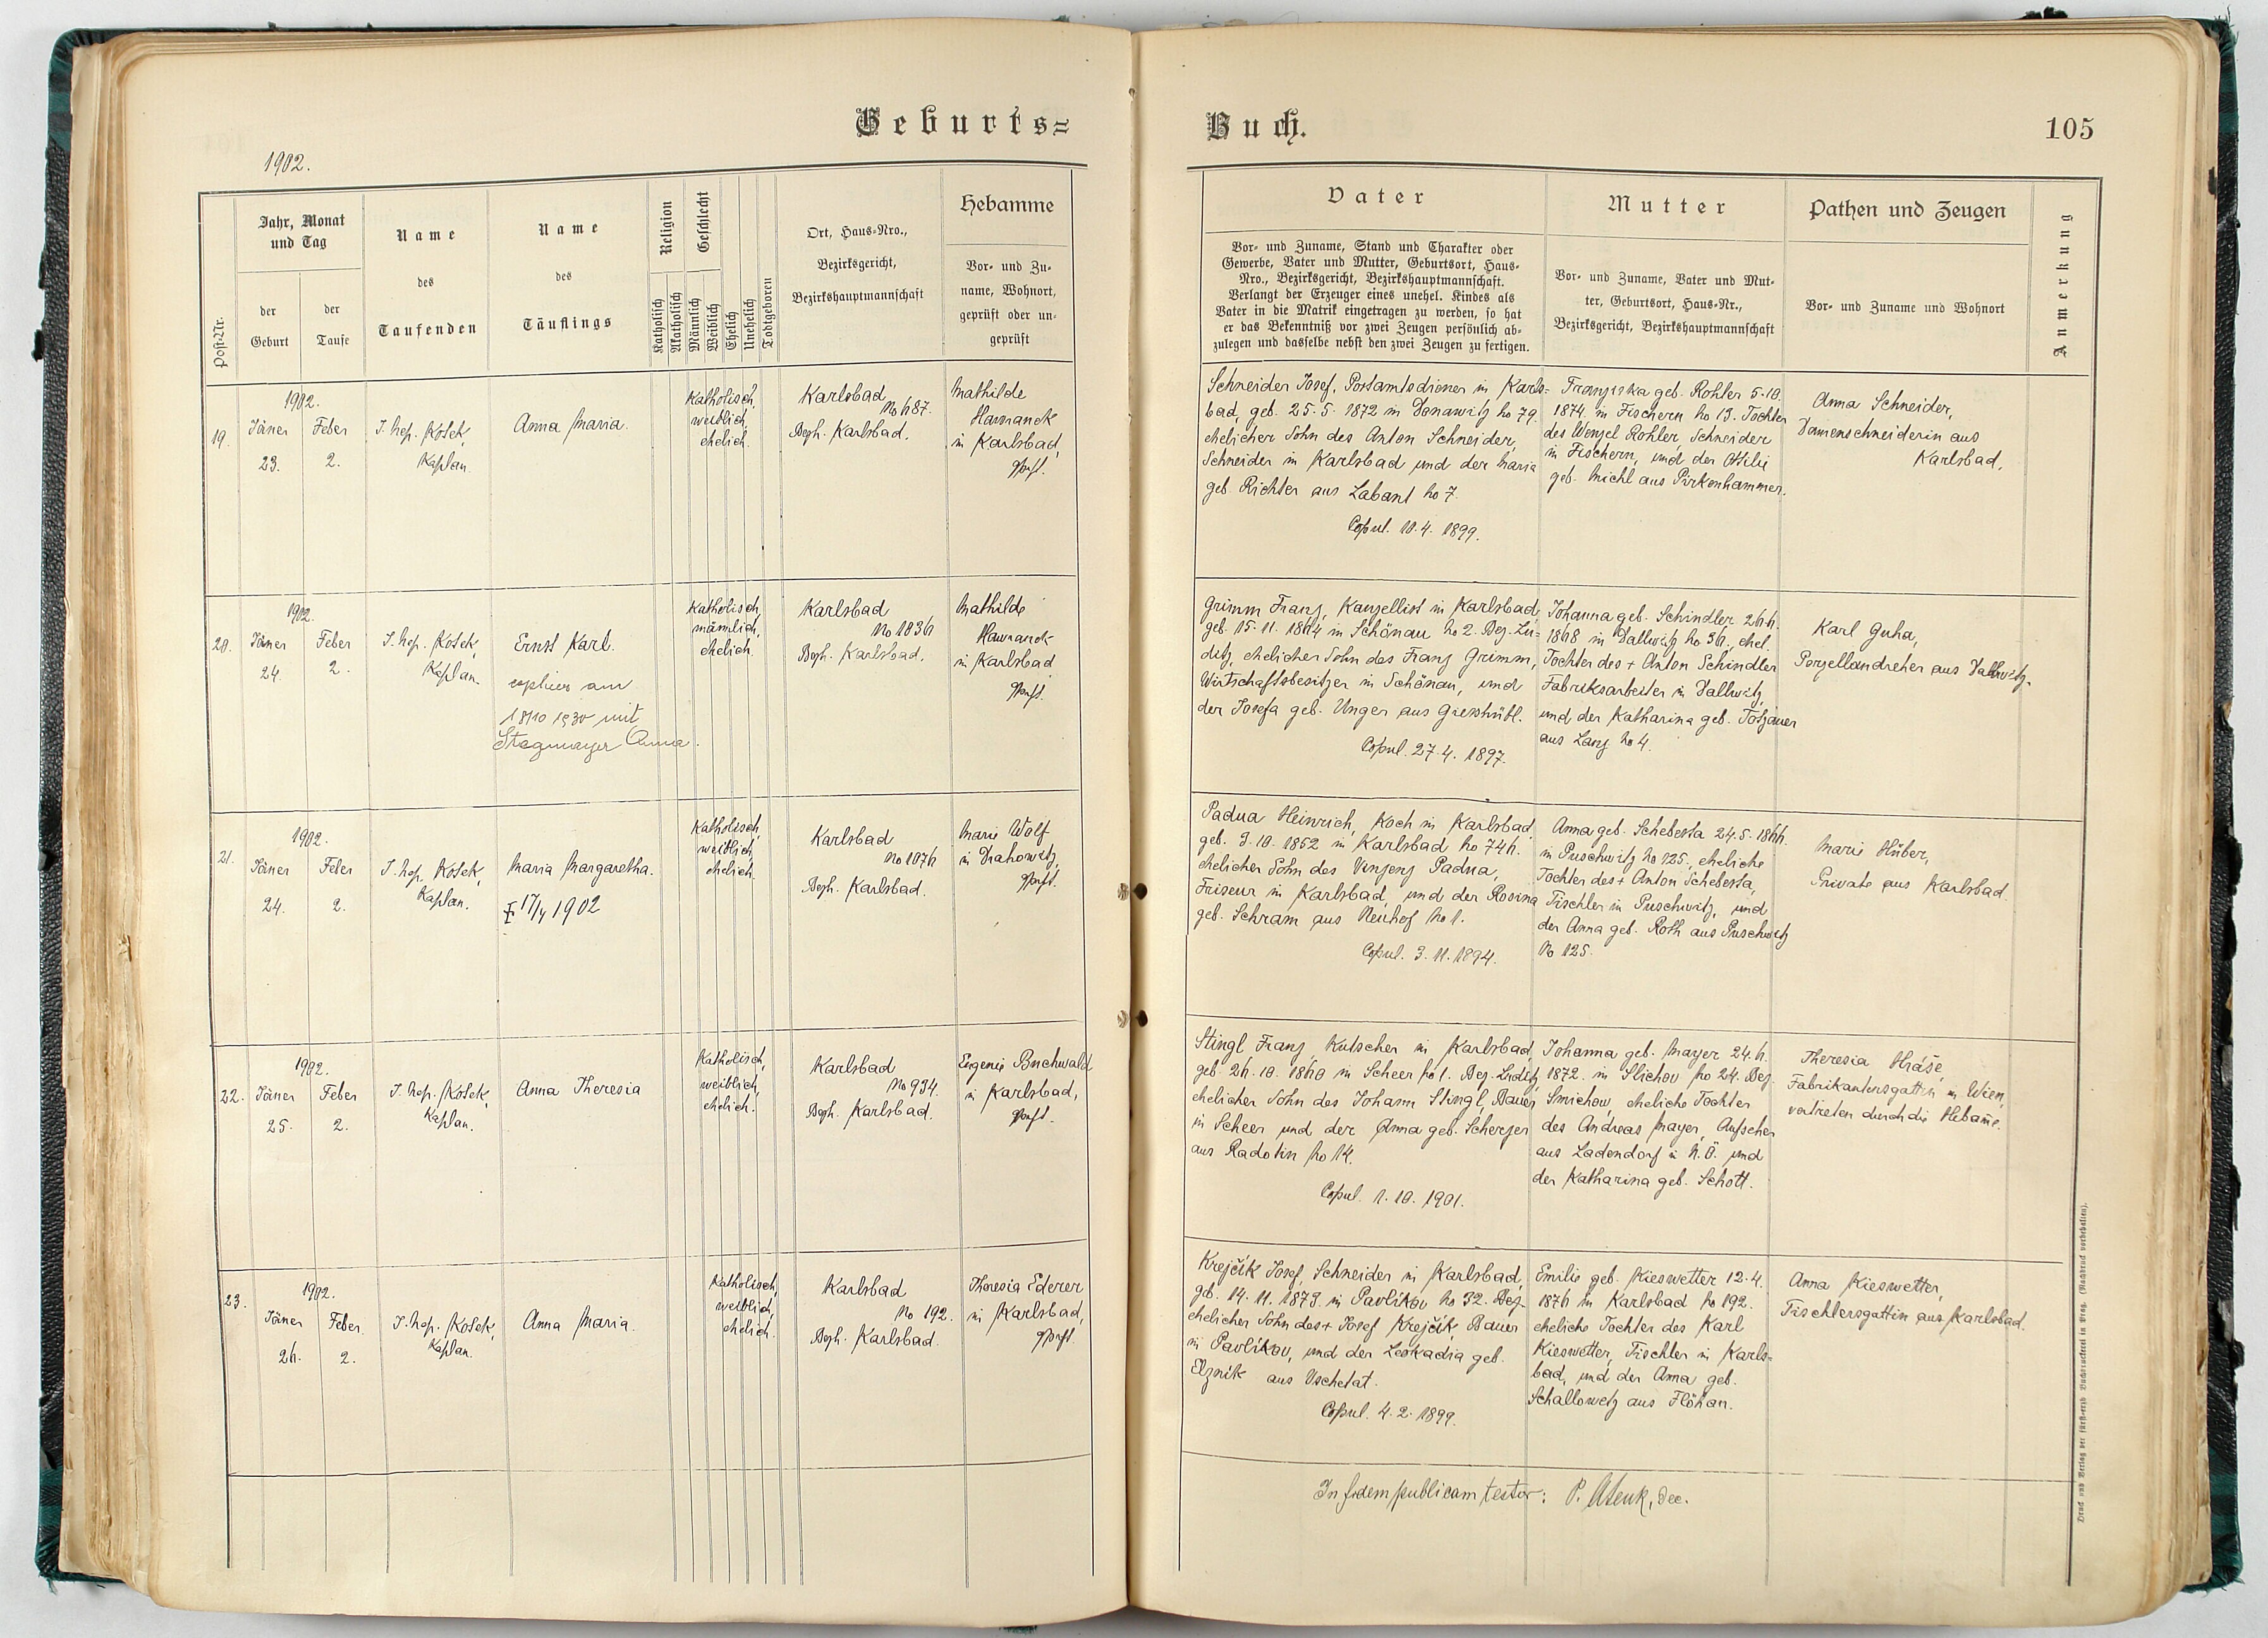 Geburts=
Buch.
105
1902.
Post-Nr.
Jahr, Monat
und Tag
der
Geburt
der
Taufe
Name
des
Taufenden
Name
des
Täuflings
Religion
Katholisch
Akatholisch
Geschlecht
Männlich
Weiblich
Ehelich
Unehelich
Todtgeboren
Ort, Haus-Nro.,
Bezirksgericht,
Bezirkshauptmannschaft
Hebamme
Vor- und Zu-
name, Wohnort,
geprüft oder un-
geprüft
Vater
Vor- und Zuname, Stand und Charakter oder
Gewerbe, Vater und Mutter, Geburtsort, Haus-
Nro., Bezirksgericht, Bezirkshauptmannschaft.
Verlangt der Erzeuger eines unehel. Kindes als
Vater in die Matrik eingetragen zu werden, so hat
er das Bekenntniß vor zwei Zeugen persönlich ab-
zulegen und dasselbe nebst den zwei Zeugen zu fertigen.
Mutter
Vor- und Zuname, Vater und Mut-
ter, Geburtsort, Haus-Nr.,
Bezirksgericht, Bezirkshauptmannschaft
Pathen und Zeugen
Vor- und Zuname und Wohnort
Anmerkung
19.
1902.
Jäner
23.
Feber
2.
J. Nep. Kosek,
Kaplan.
Anna Maria.
Katholisch,
weiblich,
ehelich.
Karlsbad
No 687.
Bzgh. Karlsbad.
Mathilde
Hawranek
in Karlsbad,
gprft.
Schneider Josef, Postamtsdiener in Karls-
bad, geb. 25.5.1872 in Donawitz No 79.
ehelicher Sohn des Anton Schneider,
Schneider in Karlsbad und der Maria
geb. Richter aus Labant No 7.
Copul. 10.4.1899.
Franziska geb. Rohler 5.10.
1874. in Fischern No 19. Tochter
des Wenzel Rohler Schneider
in Fischern, und der Ottilie
geb. Michl aus Pirkenhammer.
Anna Schneider,
Damenschneiderin aus
Karlsbad.
20.
1902.
Jäner
24.
Feber
2.
J. Nep. Kosek,
Kaplan.
Ernst Karl.
copliert am
18/10 1930 mit
Stegmayer Anna.
Katholisch,
männlich,
ehelich.
Karlsbad
No 1836
Bzgh. Karlsbad.
Mathilde
Hawranek
in Karlsbad
gprft.
Grimm Franz, Kanzellist in Karlsbad,
geb. 15.11.1864 in Schönau No 2. Bez. Lu-
ditz, ehelicher Sohn des Franz Grimm,
Wirtschaftsbesitzer in Schönau, und
der Josefa geb. Unger aus Giesshübl.
Copul. 27.4.1897.
Johanna geb. Schindler 26.6.
1868 in Dallwitz No 36, ehel.
Tochter des + Anton Schindler
Fabriksarbeiter in Dallwitz,
und der Katharina geb. Totzauer
aus Lanz No 4.
Karl Guha,
Porzellandreher aus Dallwitz.
21.
1902.
Jäner
24.
Feber
2.
J. Nep. Kosek,
Kaplan.
Maria Margaretha.
17/4 1902
Katholisch,
weiblich,
ehelich.
Karlsbad
No 1076
Bzgh. Karlsbad.
Marie Wolf
in Drahowitz,
gprft.
Padua Heinrich, Koch in Karlsbad,
geb. 3.10.1852 in Karlsbad No 746.
ehelicher Sohn des Vinzenz Padua,
Friseur in Karlsbad, und der Rosina
geb. Schram aus Neuhof No 1.
Copul. 3.11.1894.
Anna geb. Schebesta 24.5.1866.
in Puschwitz No 125., eheliche
Tochter des + Anton Schebesta,
Tischler in Puschwitz, und
der Anna geb. Roth aus Puschwitz
No 125.
Marie Hüber,
Private aus Karlsbad.
22.
1902.
Jäner
25.
Feber
2.
J. Nep. Kosek,
Kaplan.
Anna Theresia
Katholisch,
weiblich,
ehelich.
Karlsbad
No 934.
Bzgh. Karlsbad.
Eugenie Buchwald
in Karlsbad,
gprft.
Stingl Franz, Kutscher in Karlsbad,
geb. 26.10.1860 in Scheer No 1. Bez. Luditz,
ehelicher Sohn des Johann Stingl, Bauer
in Scheer und der Anna geb. Scherzer
aus Radotin No 14.
Copul. 1.10.1901.
Johanna geb. Mayer 24.6.
1872. in Slichov No 24. Bez.
Smichow, eheliche Tochter
des Andreas Mayer, Aufseher
aus Ladendorf in N.Ö. und
der Katharina geb. Schott.
Theresia Hráše,
Fabrikantensgattin in Wien,
vertreten durch die Hebam̄e.
23.
1902.
Jäner
26.
Feber.
2.
J. Nep. Kosek,
Kaplan.
Anna Maria.
Katholisch,
weiblich,
ehelich.
Karlsbad
No 192.
Bzgh. Karlsbad.
Theresia Ederer
in Karlsbad,
gprft.
Krejčik Josef, Schneider in Karlsbad,
geb. 14.11.1873. in Pavlíkov No 32. Bez.
ehelicher Sohn des + Josef Krejčik, Bauer
in Pavlíkov, und der Leokadia geb.
Elznik aus Vschetat.
Copul. 4.2.1899.
Emilie geb. Kieswetter 12.4.
1876 in Karlsbad No 192.
eheliche Tochter des Karl
Kieswetter, Tischler in Karls-
bad, und der Anna geb.
Schallowetz aus Flöhau.
Anna Kieswetter,
Tischlersgattin aus Karlsbad.
In fidem publicam testor: P. Dec.
Druck und Verlag der fürst-erzb. Buchdruckerei in Prag. (Nachdruck vorbehalten).